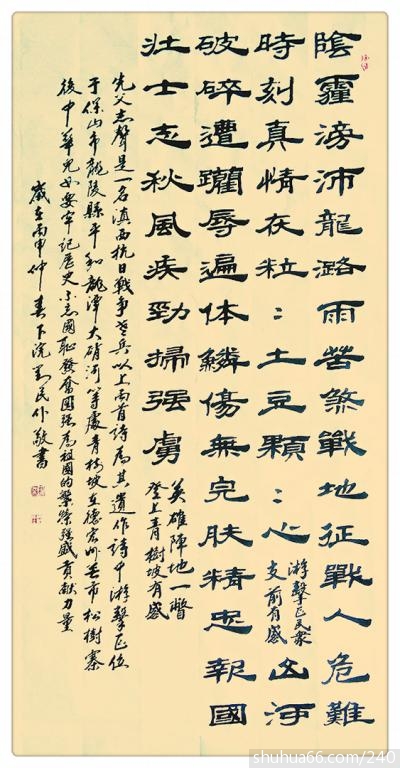 陰霾滂沛龍潞雨苦煞戰地征戰人危難
時刻真情在粒〻土豆顆〻心
游擊区民衆
支前有感
山河
破碎遭躪辱遍体鱗傷無完肤精忠報國
壮士志秋風疾勁掃强虜
英雄陣地一瞥
登上青樹坡有感
先父志聲是一名滇西抗日戰争老兵以上兩首詩爲其遺作詩中游擊区位
于保山市龍陵縣平和龍潭大硝河等處青樹坡在德宏州芒市松樹寨
後中華兒女要牢記歷史不忘國恥發奮圖强爲祖國的繁榮强盛貢献力量
歲在丙申仲春下浣民仆敬書
shuhua66.com/240